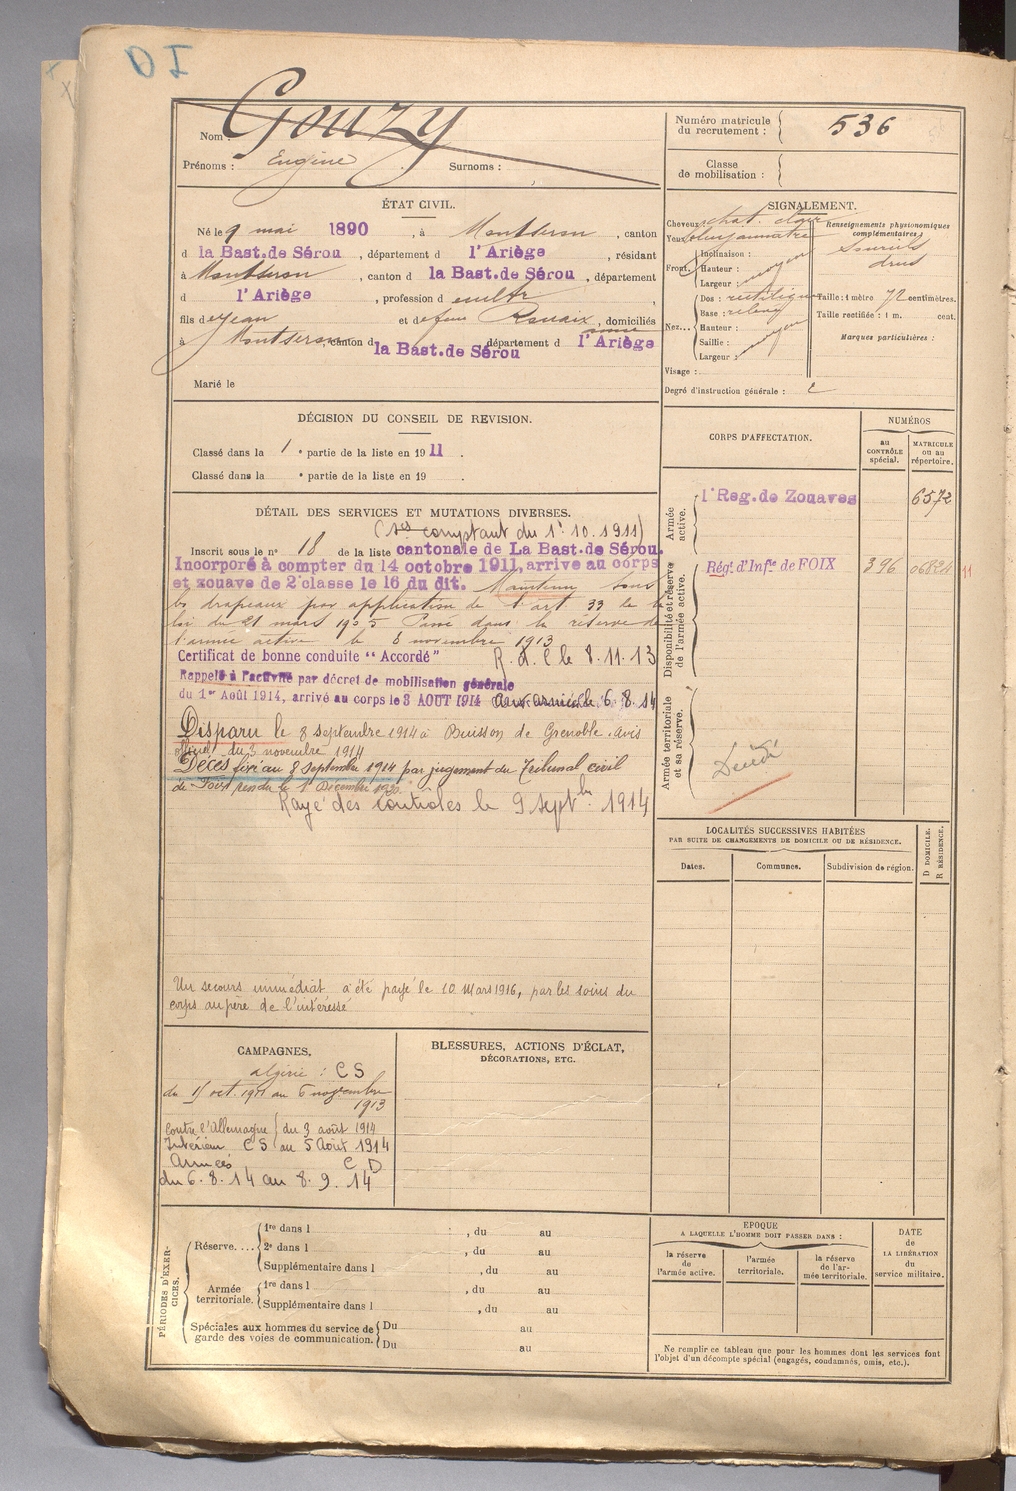 Nom : Gouzy
Prénoms : Eugène Surnoms :
Numéro matricule du recrutement : 536
Classe de mobilisation :
ÉTAT CIVIL.
Né le 9 mai 1890, à Montseron, canton
d la Bast. de Sérou, département d l'Ariège, résidant
à Montseron, canton d la Bast. de Sérou, département
d l'Ariège, profession de cultr,
fils de Jean et de feue Rouaix, domiciliés
à Montseron, canton d la Bast. de Sérou département d l'Ariège
Marié le
SIGNALEMENT.
Cheveux chat. clair
Yeux bleu jaunâtre
Front. Inclinaison :
Hauteur : moyen
Largeur :
Nez... Dos : rectiligne
Base : relevé
Hauteur : moyen
Saillie :
Largeur :
Visage :
Renseignements physionomiques complémentaires
Sourcils
drus
Taille : 1 mètre 72 centimètres.
Taille rectifiée : 1 m. cent.
Marques particulières :
Degré d'instruction générale : 2
DÉCISION DU CONSEIL DE REVISION.
Classé dans la 1 e partie de la liste en 1911.
Classé dans la e partie de la liste en 19 .
DÉTAIL DES SERVICES ET MUTATIONS DIVERSES.
(1es comptant du 1r 10.1911)
Inscrit sous le n° 18 de la liste cantonale de La Bast. de Sérou.
Incorporé à compter du 14 octobre 1911, arrive au corps
et zouave de 2e classe le 16 du dit. Maintenu sous
les drapeaux par application de l'art 33 de la
loi du 21 mars 1905 Passé dans la réserve de
l'armée active le 8 novembre 1913
Certificat de bonne conduite " Accordé " R. d. C le 8.11.13
Rappelé à l'activité par décret de mobilisation générale
du 1er Août 1914, arrivé au corps le 3 AOUT 1914 Aux armées le 6.8.14
Disparu le 8 septembre 1914 à Buisson de Grenoble. Avis
Minel du 3 novembre 1914
Décès fixé au 8 Septembre 1914 par jugement du Tribunal civil
de Foix rendu le 1 Décembre 1920.
Rayé des contrôles le 9 septbre 1914
Un secours immédiat a été payé le 10 Mars 1916, par les soins du
corps au père de l'intéressé
CORPS D'AFFECTATION.
NUMÉROS
au contrôle spécial.
MATRICULE ou au répertoire.
Armée active.
1r Reg. de Zouaves 6572
Disponibilité et réserve de l'armée active.
Régt. d'Infie de FOIX 396 06824 11
Armée territoriale et sa réserve.
Décédé
LOCALITÉS SUCCESSIVES HABITÉES
PAR SUITE DE CHANGEMENTS DE DOMICILE OU DE RÉSIDENCE.
Dates. Communes. Subdivision de région.
D DOMICILE.
R RÉSIDENCE.
CAMPAGNES.
Algérie : C S
du 15 oct. 1911 au 6 novembre
1913
Contre l'Allemagne du 3 août 1914
Intérieur C S au 5 Août 1914
Armées C D
du 6.8.14 au 8.9.14
BLESSURES, ACTIONS D'ÉCLAT,
DÉCORATIONS, ETC.
PÉRIODES D'EXERCICES.
Réserve....
1re dans l , du au
2e dans l , du au
Supplémentaire dans l , du au
Armée territoriale.
1re dans l , du au
Supplémentaire dans l , du au
Spéciales aux hommes du service de garde des voies de communication.
Du au
Du au
EPOQUE
A LAQUELLE L'HOMME DOIT PASSER DANS :
la réserve de l'armée active.
l'armée territoriale.
la réserve de l'armée territoriale.
DATE
de
LA LIBÉRATION
du
service militaire.
Ne remplir ce tableau que pour les hommes dont les services font
l'objet d'un décompte spécial (engagés, condamnés, omis, etc.).